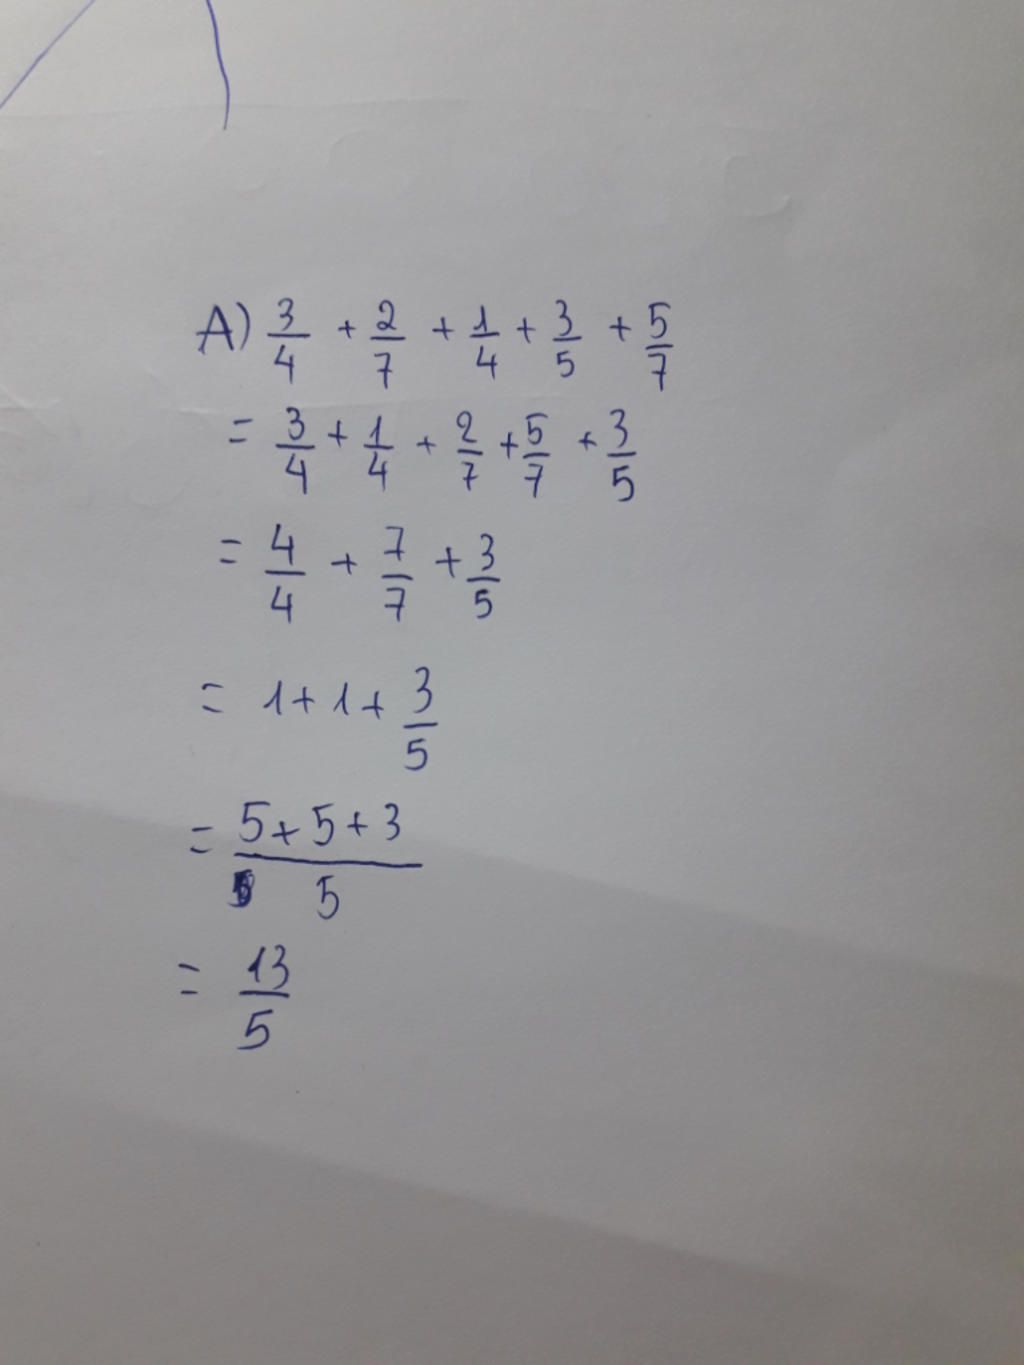 A) 3/4 + 2/7 + 1/4 + 3/5 + 5/7
= 3/4 + 1/4 + 2/7 + 5/7 + 3/5
= 4/4 + 7/7 + 3/5
= 1 + 1 + 3/5
= (5 + 5 + 3)/5
= 13/5